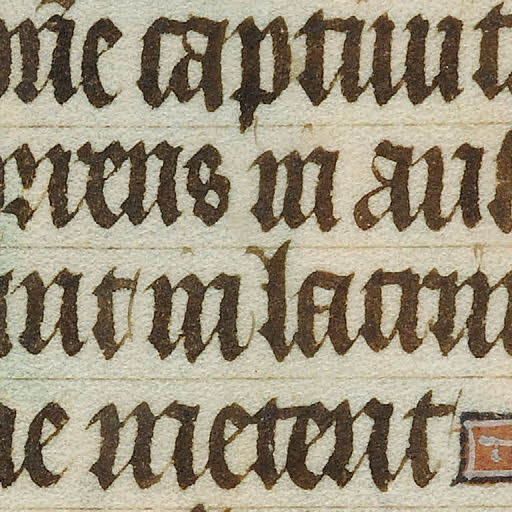 n̄e captiuit
rrens in aus
ant in lacrim
ne metent